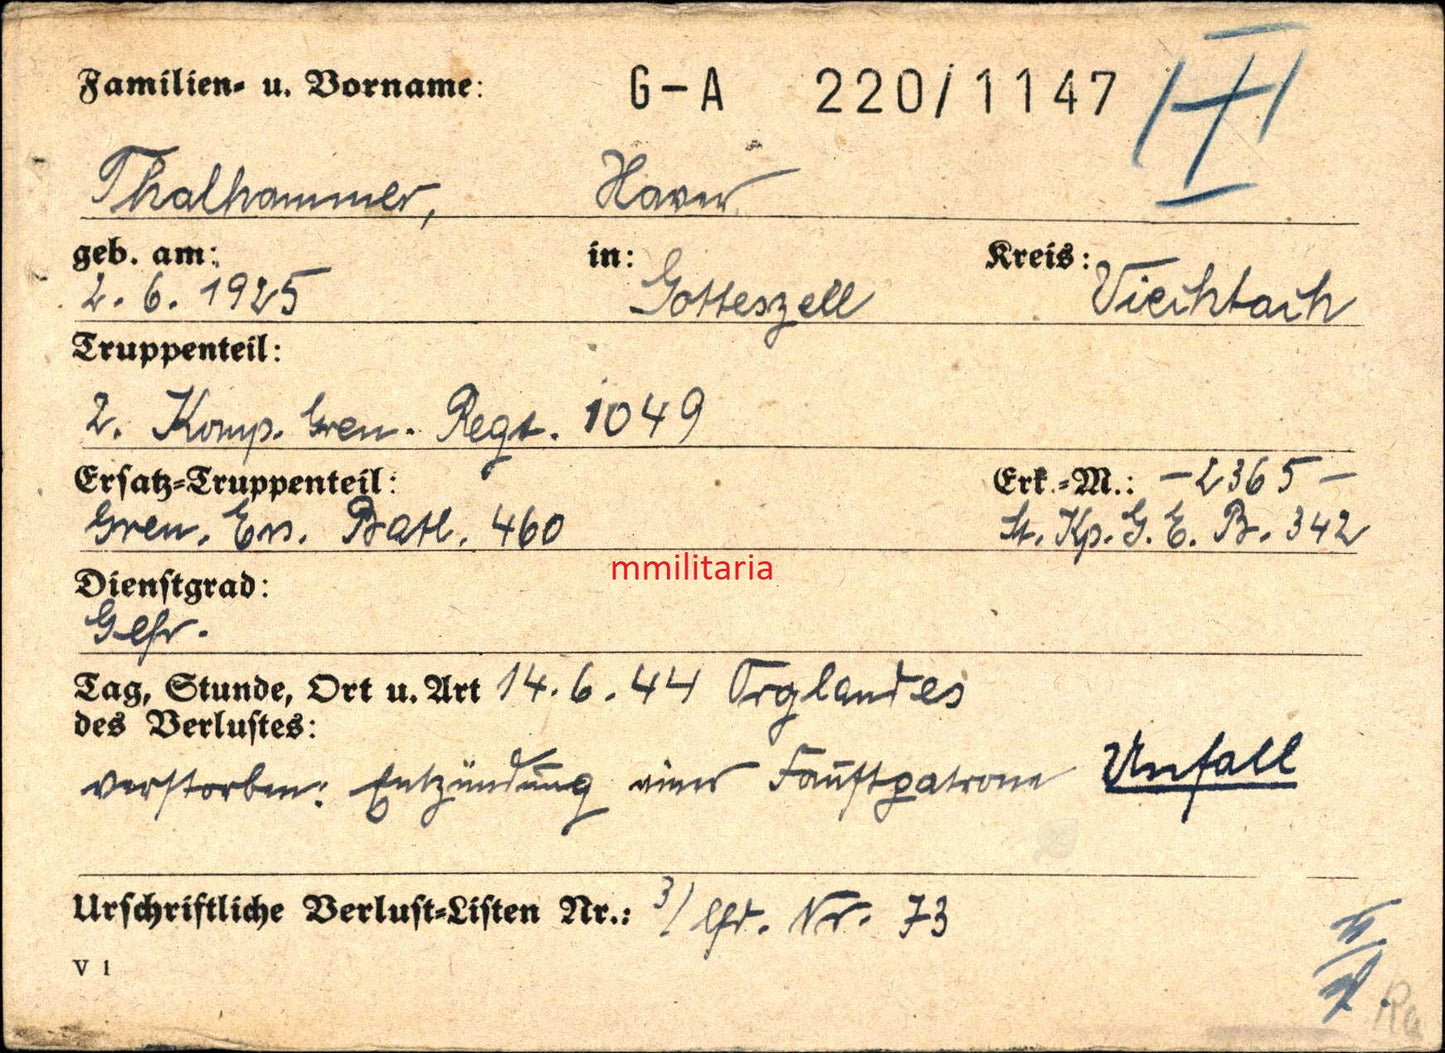 Familien- u. Vorname: G-A 220/1147
Thalhammer, Xaver
geb. am: in: Kreis:
2. 6. 1925 Gotteszell Viechtach
Truppenteil:
2. Komp. Gren. Regt. 1049
Ersatz-Truppenteil: Erk.-M.: -2365-
Gren. Ers. Batl. 460 St. Kp. G. E. B. 342
Dienstgrad:
Gefr.
Tag, Stunde, Ort u. Art 14. 6. 44 Orglandes
des Verlustes:
verstorben: Entzündung einer Faustpatrone Unfall
Urschriftliche Verlust-Listen Nr.: 3/ lfd. Nr. 73
V 1
mmilitaria